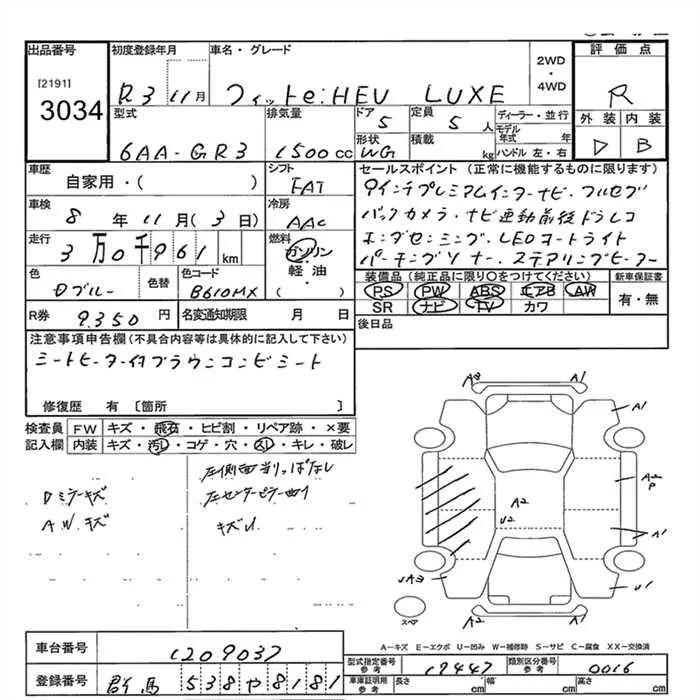 出品番号
[2191]
3034
初度登録年月
R3 11月
車名・グレード
フィットe:HEV LUXE
2WD
・
4WD
評価点
R
外装 内装
D B
型式
6AA-GR3
排気量
1500cc
ドア
5
定員
5人
ディーラー・並行
モデル年式 年
ハンドル 左・右
形状
WG
積載
kg
車歴
自家用・( )
シフト
FAT
車検
8年11月(3日)
冷房
AAC
走行
3万0千961km
燃料
ガソリン
・
軽・油
( )
色
Dブルー
色替
色コード
B610MX
R券
9.350円
名変通知期限 月 日
セールスポイント(正常に機能するものに限ります)
9インチプレミアムインターナビ・フルセグ
バックカメラ・ナビ連動前後ドラレコ
ホンダセンシング・LEDコートライト
パーキングソナー・ステアリングヒーター
装備品(純正品に限り○をつけてください)
PS PW ABS エアB AW
SR ナビ TV カワ
新車保証書
有・無
後日品
注意事項申告欄(不具合内容等は具体的に記入して下さい)
シートヒーター付ブラウンコンビシート
修復歴 有〔箇所 〕
検査員記入欄
FW キズ・飛石・ヒビ割・リペア跡・×要
内装 キズ・汚レ・コゲ・穴・スレ・キレ・破レ
Dミラーキズ
A.W.キズ
左側面当りっぱなし
左センターピラー曲り
キズU
A3 A1
A1
A2
P
A2
U2
A1
UA3
U1
A2 A1
スペア
A-キズ E-エクボ U-凹み W-補修跡 S-サビ C-腐食 XX-交換済
車台番号
1209037
登録番号
群馬 538 や 8181
型式指定番号
参考
19447
類別区分番号
参考
0016
車庫証明用
参考
長さ cm 幅 cm 高さ cm